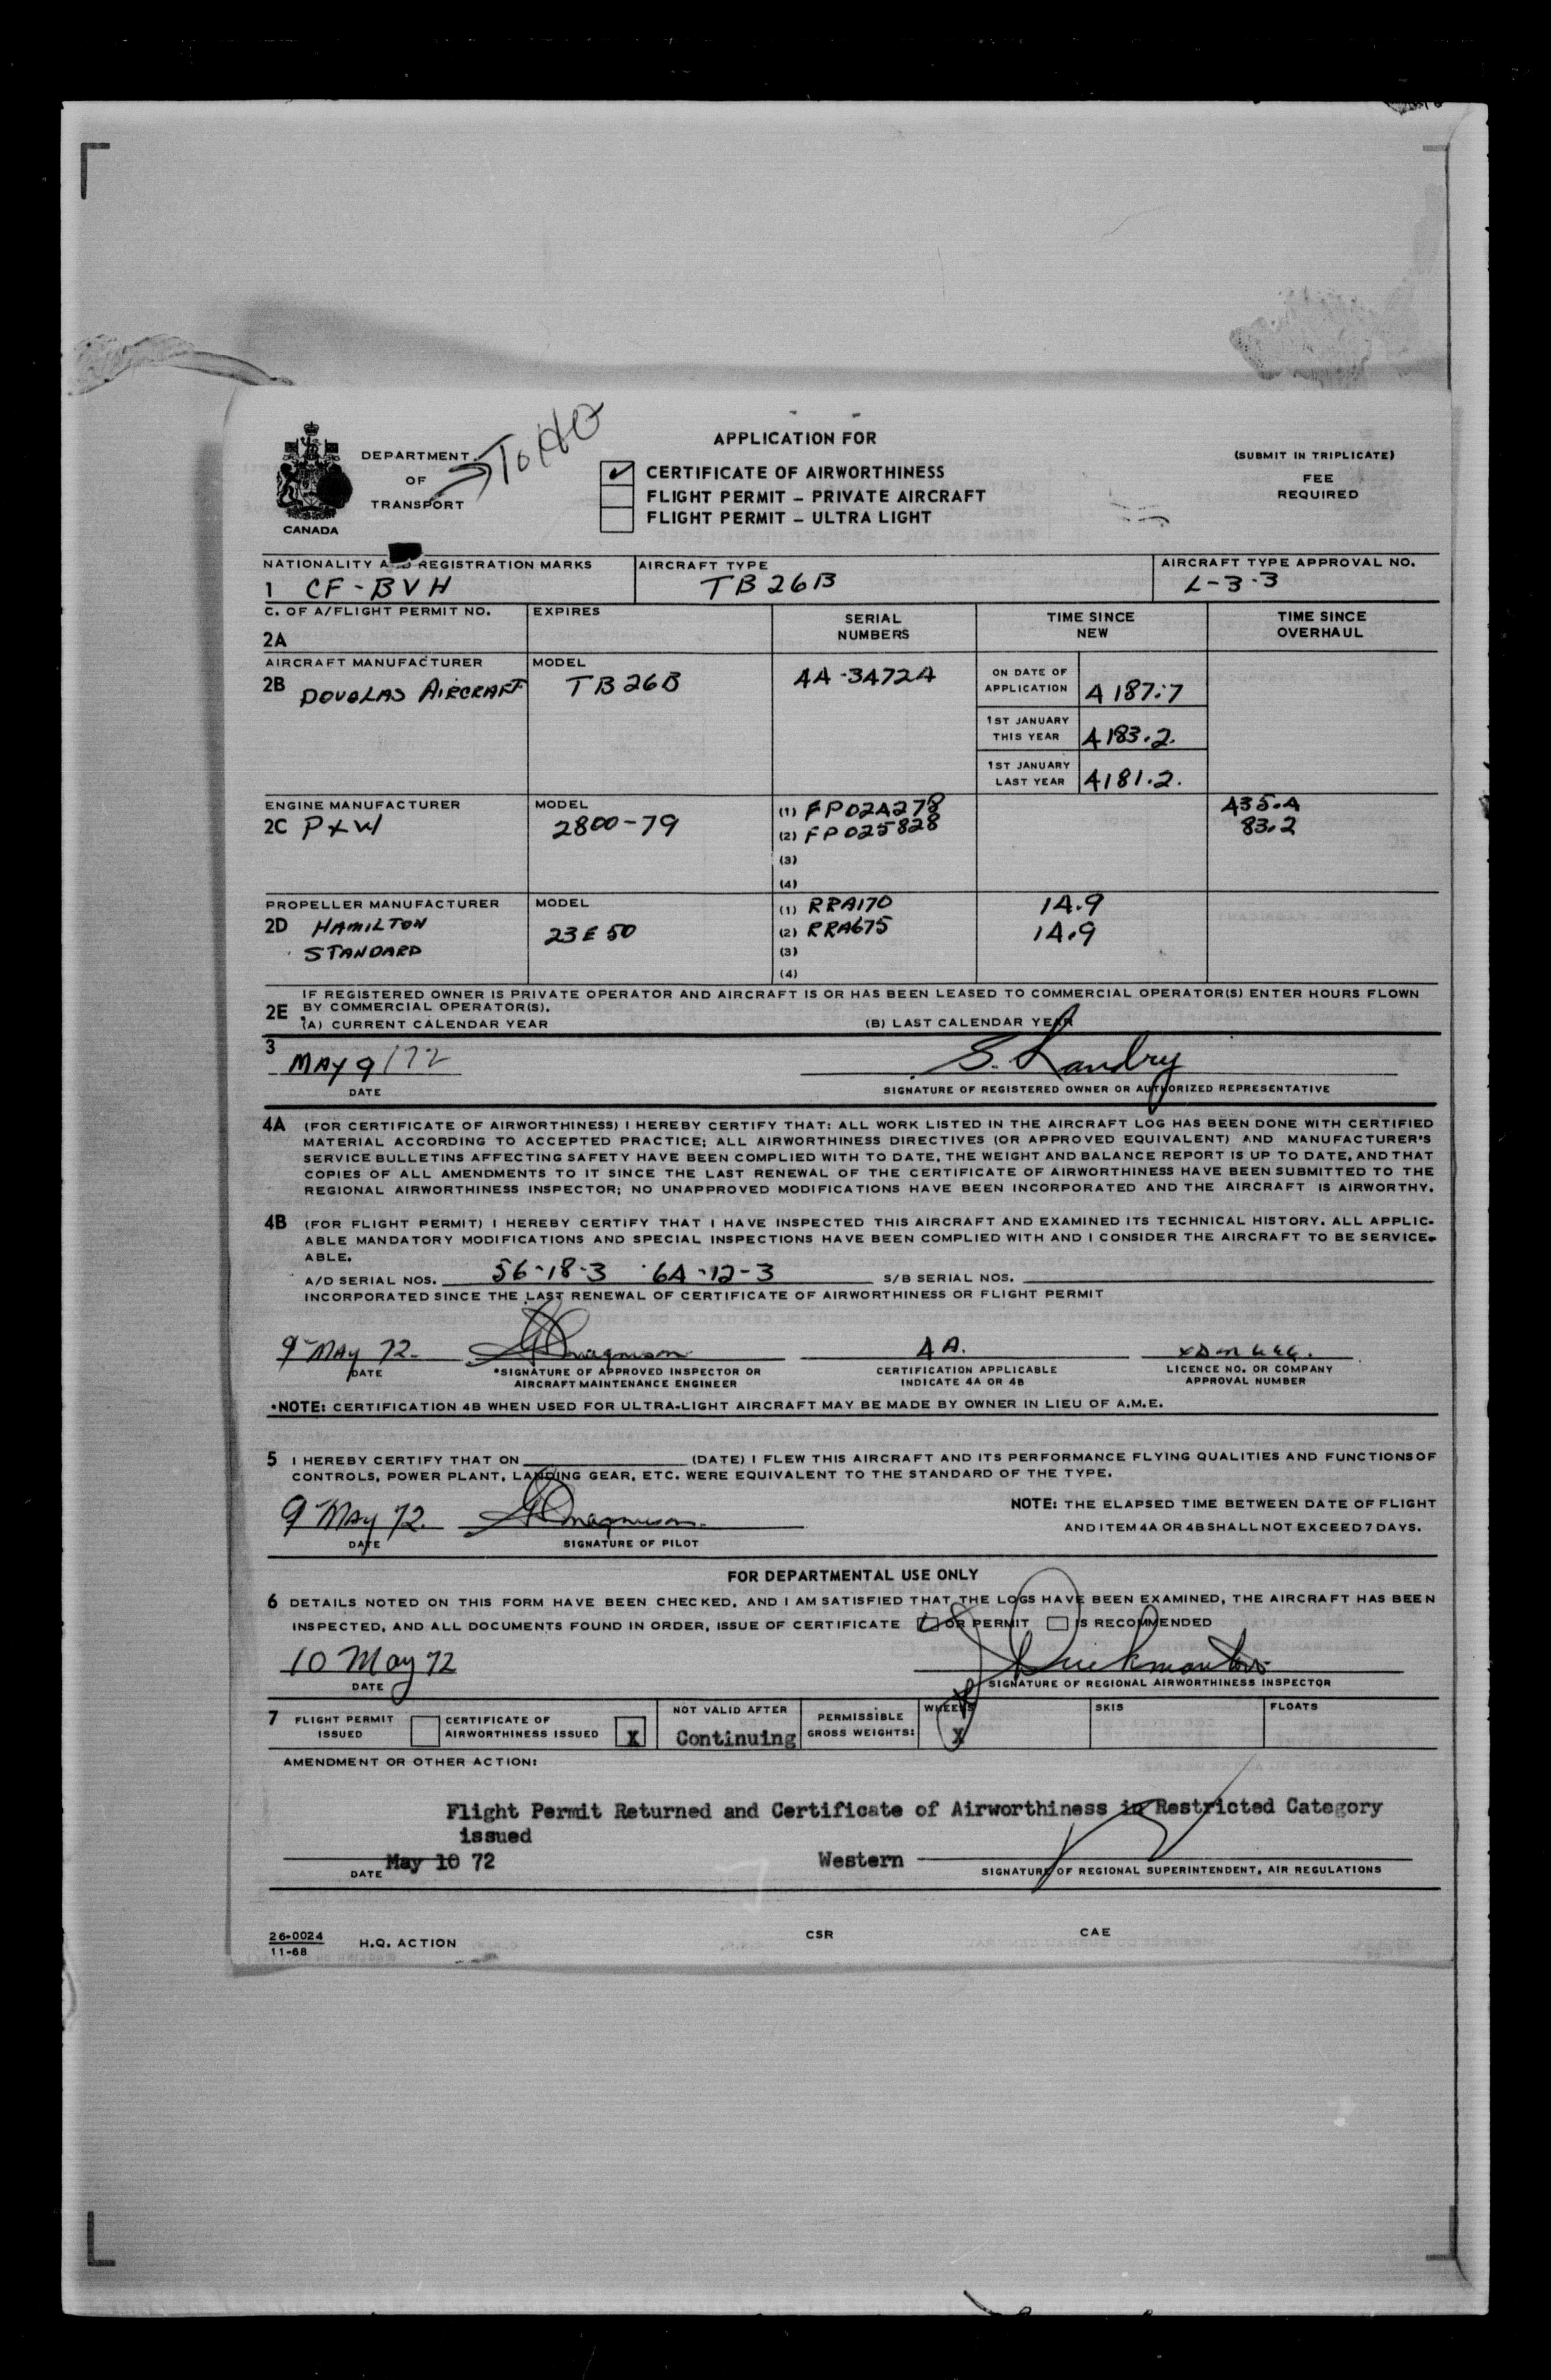 To HQ
DEPARTMENT
OF
TRANSPORT
CANADA
APPLICATION FOR
CERTIFICATE OF AIRWORTHINESS
FLIGHT PERMIT – PRIVATE AIRCRAFT
FLIGHT PERMIT – ULTRA LIGHT
(SUBMIT IN TRIPLICATE)
FEE
REQUIRED
NATIONALITY AND REGISTRATION MARKS
1 CF-BVH
AIRCRAFT TYPE
TB26B
AIRCRAFT TYPE APPROVAL NO.
L-3-3
C. OF A/FLIGHT PERMIT NO.
2A
EXPIRES
SERIAL
NUMBERS
TIME SINCE
NEW
TIME SINCE
OVERHAUL
AIRCRAFT MANUFACTURER
2B DOUGLAS AIRCRAFT
MODEL
TB26B
44-34724
ON DATE OF
APPLICATION 4187.7
1ST JANUARY
THIS YEAR 4183.2.
1ST JANUARY
LAST YEAR 4181.2.
ENGINE MANUFACTURER
2C P&W
MODEL
2800-79
(1) FP024278
(2) FP025828
(3)
(4)
435.4
83.2
PROPELLER MANUFACTURER
2D HAMILTON
STANDARD
MODEL
23E50
(1) RRA170
(2) RRA675
(3)
(4)
14.9
14.9
2E IF REGISTERED OWNER IS PRIVATE OPERATOR AND AIRCRAFT IS OR HAS BEEN LEASED TO COMMERCIAL OPERATOR(S) ENTER HOURS FLOWN
BY COMMERCIAL OPERATOR(S).
(A) CURRENT CALENDAR YEAR (B) LAST CALENDAR YEAR
3 MAY 9/72 S. Landry
DATE SIGNATURE OF REGISTERED OWNER OR AUTHORIZED REPRESENTATIVE
4A (FOR CERTIFICATE OF AIRWORTHINESS) I HEREBY CERTIFY THAT: ALL WORK LISTED IN THE AIRCRAFT LOG HAS BEEN DONE WITH CERTIFIED
MATERIAL ACCORDING TO ACCEPTED PRACTICE; ALL AIRWORTHINESS DIRECTIVES (OR APPROVED EQUIVALENT) AND MANUFACTURER'S
SERVICE BULLETINS AFFECTING SAFETY HAVE BEEN COMPLIED WITH TO DATE, THE WEIGHT AND BALANCE REPORT IS UP TO DATE, AND THAT
COPIES OF ALL AMENDMENTS TO IT SINCE THE LAST RENEWAL OF THE CERTIFICATE OF AIRWORTHINESS HAVE BEEN SUBMITTED TO THE
REGIONAL AIRWORTHINESS INSPECTOR; NO UNAPPROVED MODIFICATIONS HAVE BEEN INCORPORATED AND THE AIRCRAFT IS AIRWORTHY.
4B (FOR FLIGHT PERMIT) I HEREBY CERTIFY THAT I HAVE INSPECTED THIS AIRCRAFT AND EXAMINED ITS TECHNICAL HISTORY. ALL APPLIC-
ABLE MANDATORY MODIFICATIONS AND SPECIAL INSPECTIONS HAVE BEEN COMPLIED WITH AND I CONSIDER THE AIRCRAFT TO BE SERVICE-
ABLE.
A/D SERIAL NOS. 56-18-3 64-12-3 S/B SERIAL NOS.
INCORPORATED SINCE THE LAST RENEWAL OF CERTIFICATE OF AIRWORTHINESS OR FLIGHT PERMIT
9 MAY 72. Magnuson 4A.
DATE *SIGNATURE OF APPROVED INSPECTOR OR
AIRCRAFT MAINTENANCE ENGINEER
CERTIFICATION APPLICABLE
INDICATE 4A OR 4B
LICENCE NO. OR COMPANY
APPROVAL NUMBER
*NOTE: CERTIFICATION 4B WHEN USED FOR ULTRA-LIGHT AIRCRAFT MAY BE MADE BY OWNER IN LIEU OF A.M.E.
5 I HEREBY CERTIFY THAT ON (DATE) I FLEW THIS AIRCRAFT AND ITS PERFORMANCE FLYING QUALITIES AND FUNCTIONS OF
CONTROLS, POWER PLANT, LANDING GEAR, ETC. WERE EQUIVALENT TO THE STANDARD OF THE TYPE.
9 May 72. Magnuson
DATE SIGNATURE OF PILOT
NOTE: THE ELAPSED TIME BETWEEN DATE OF FLIGHT
AND ITEM 4A OR 4B SHALL NOT EXCEED 7 DAYS.
FOR DEPARTMENTAL USE ONLY
6 DETAILS NOTED ON THIS FORM HAVE BEEN CHECKED, AND I AM SATISFIED THAT THE LOGS HAVE BEEN EXAMINED, THE AIRCRAFT HAS BEEN
INSPECTED, AND ALL DOCUMENTS FOUND IN ORDER, ISSUE OF CERTIFICATE OR PERMIT IS RECOMMENDED
10 May 72
DATE SIGNATURE OF REGIONAL AIRWORTHINESS INSPECTOR
7 FLIGHT PERMIT
ISSUED
CERTIFICATE OF
AIRWORTHINESS ISSUED X
NOT VALID AFTER
Continuing
PERMISSIBLE
GROSS WEIGHTS:
WHEELS
X
SKIS
FLOATS
AMENDMENT OR OTHER ACTION:
Flight Permit Returned and Certificate of Airworthiness in Restricted Category
issued
May 10 72 Western
DATE SIGNATURE OF REGIONAL SUPERINTENDENT, AIR REGULATIONS
26-0024
11-68
H.Q. ACTION CSR CAE